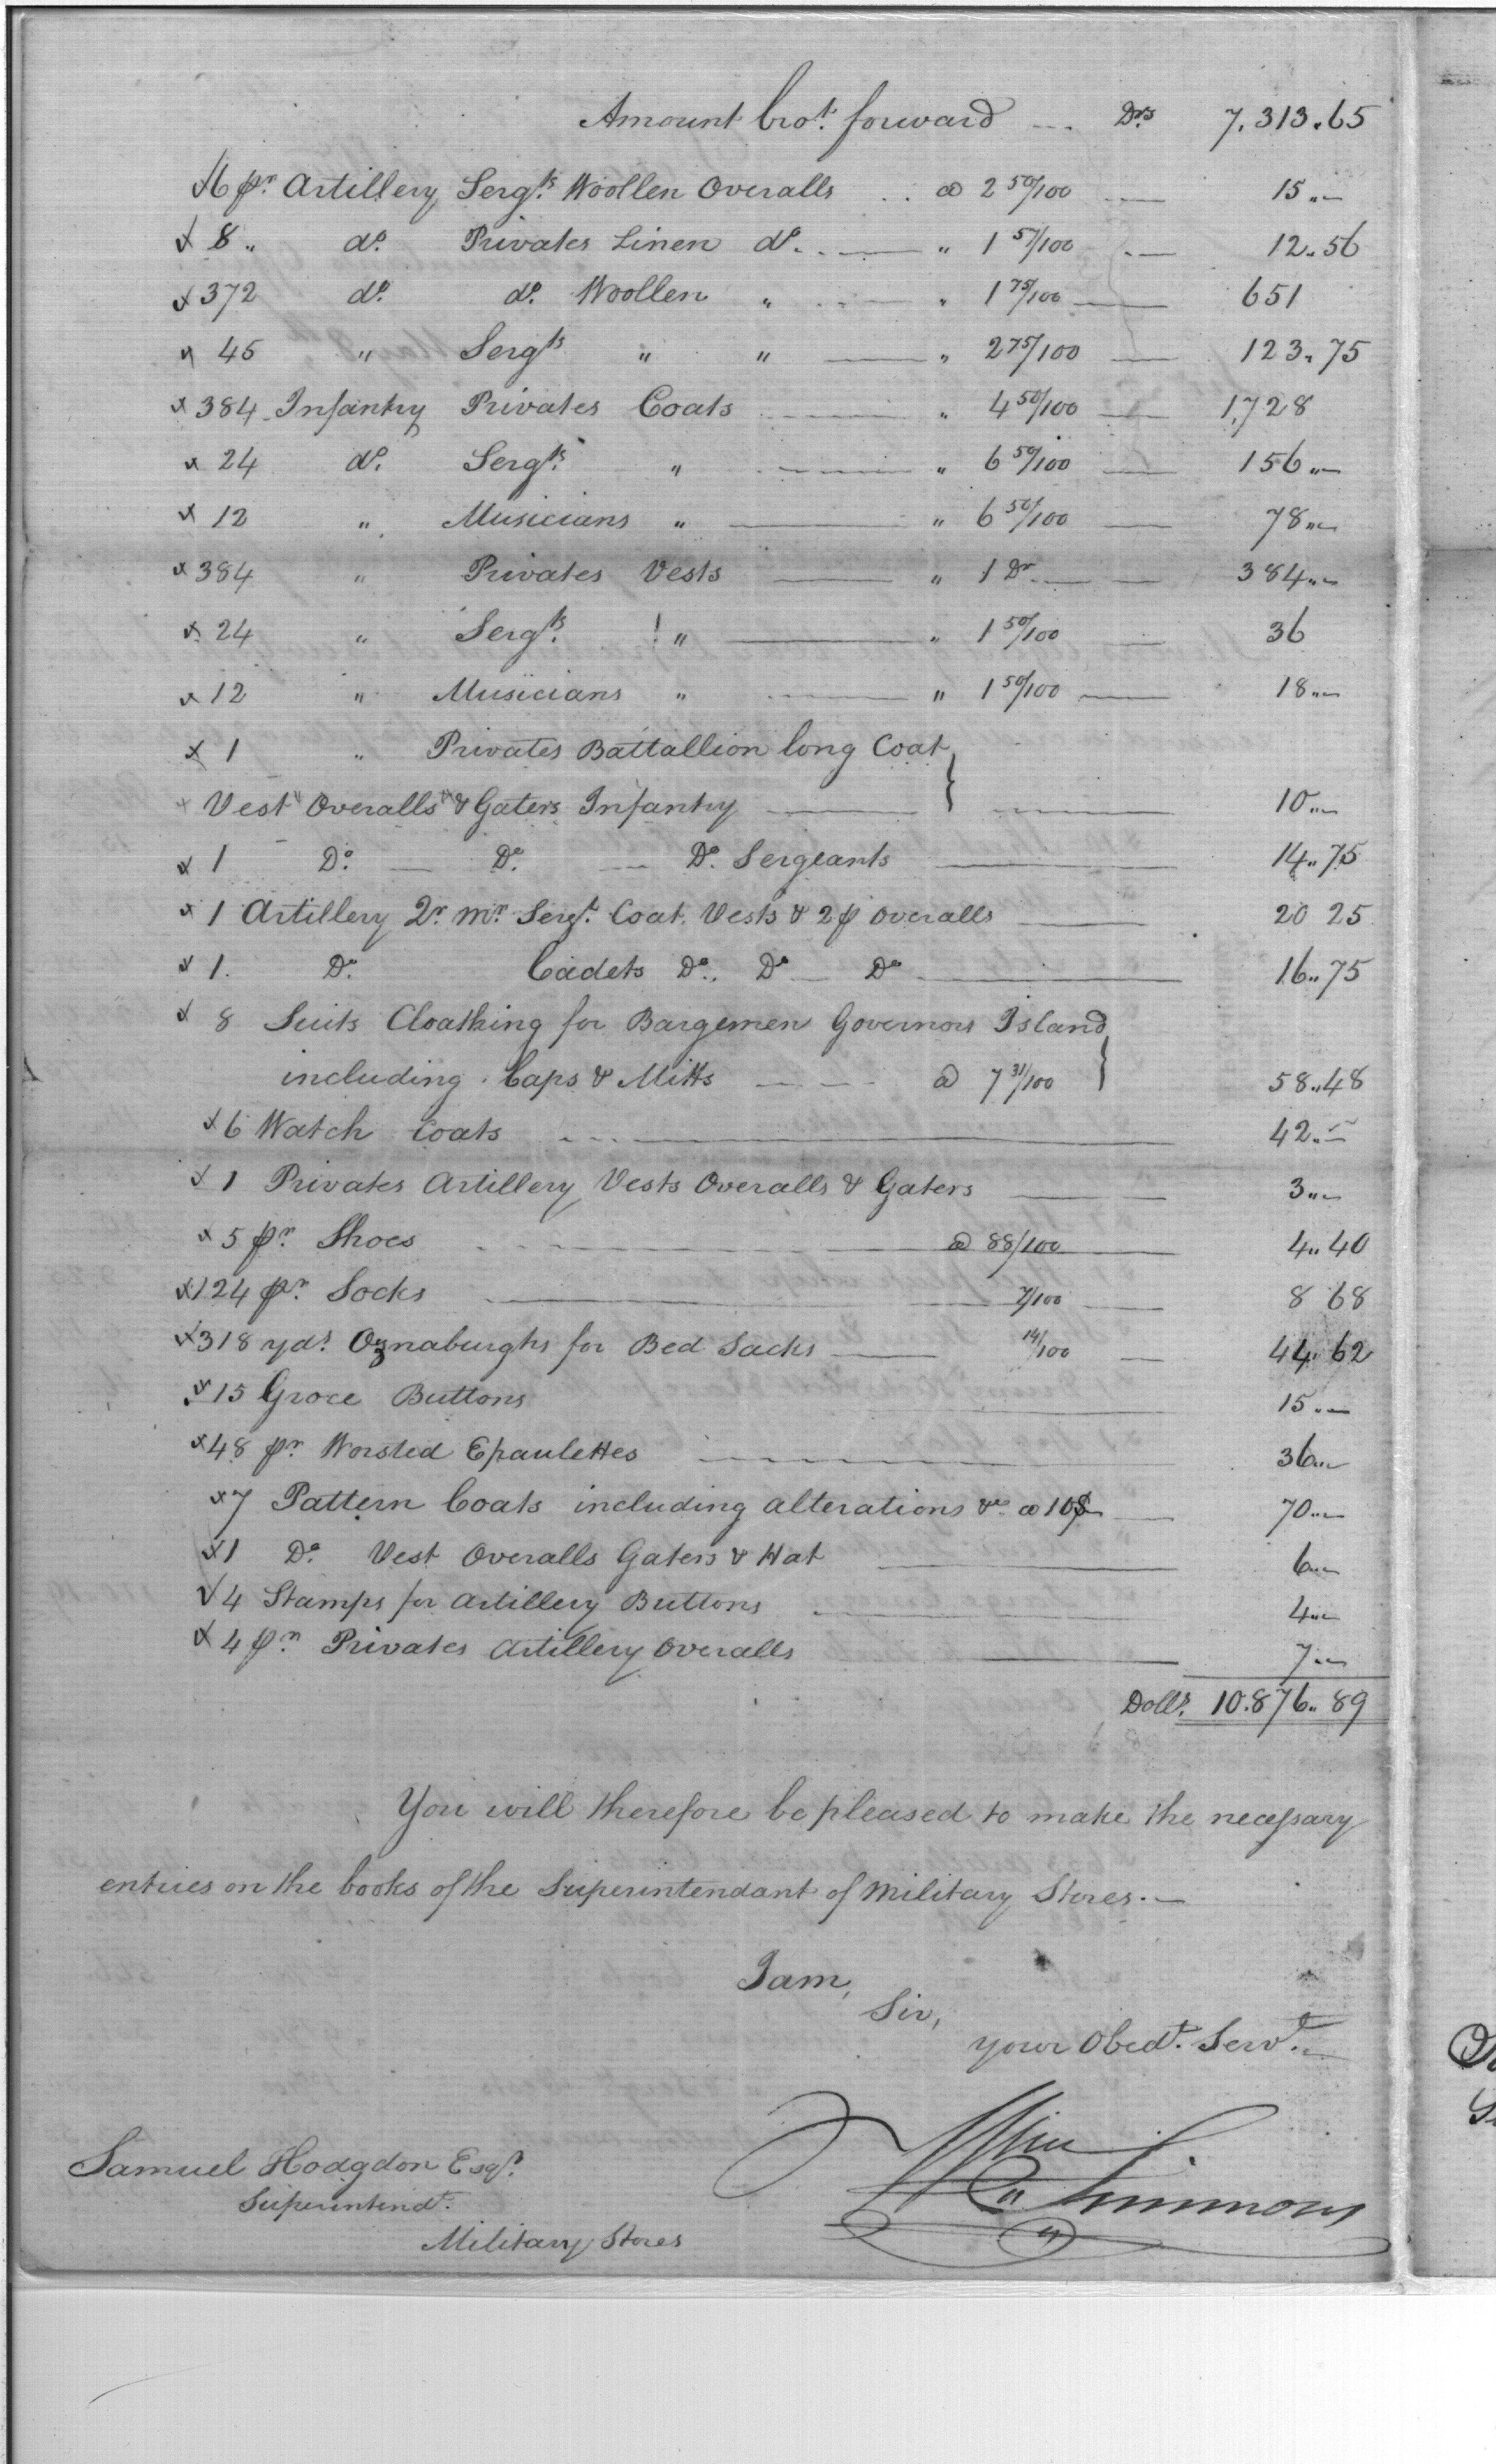 Amount bro.t forward ... Drs 7.313.65
x 6 pr. Artillery Sergts. Woollen Overalls .. @ 2 50/100 — 15 "—
x 8 " do. Privates Linen do. — " 1 57/100 — 12.56
x 372 do. do. Woollen " — " 1 75/100 — 651
x 45 " Sergts " " — " 2 75/100 — 123.75
x 384 Infantry Privates Coats — " 4 50/100 — 1,728
x 24 do. Sergts. " — " 6 50/100 — 156 "—
x 12 " Musicians " — " 6 50/100 — 78 "—
x 384 " Privates Vests — " 1 Dr. — 384 "—
x 24 " Sergts. " — " 1 50/100 — 36
x 12 " Musicians " — " 1 50/100 — 18 "—
x 1 " Privates Battallion long Coat }
x Vest Overalls & Gaters Infantry — } — 10 "—
x 1 Do. — Do. — Do. Sergeants — 14.75
x 1 Artillery Qr. Mr. Sergt. Coat, Vests & 2 p Overalls — 20 25
x 1. Do. Cadets Do., Do — Do — 16..75
x 8 Suits Cloathing for Bargemen Governors Island }
including Caps & Mitts — @ 7 31/100 } 58..48
x 6 Watch Coats ... — 42. —
x 1 Privates Artillery Vests Overalls & Gaters — 3 "—
x 5 pr. Shoes — @ 88/100 — 4..40
x 124 pr. Socks — 7/100 — 8 68
x 318 yds. Oznaburghs for Bed Sacks — 14/100 — 44.62
x 15 Groce Buttons — 15.—
x 48 pr. Worsted Epaulettes — 36 "—
x 7 Pattern Coats including alterations &c @ 10$ — 70 "—
x 1 Do. Vest Overalls Gaters & Hat — 6 "—
x 4 Stamps for Artillery Buttons — 4 "—
x 4 pr. Privates Artillery Overalls — 7 "—
Dolls. 10.876..89
You will therefore be pleased to make the necessary
entries on the books of the Superintendant of Military Stores.—
I am,
Sir,
your Obedt. Servt.
Wm Simmons
Samuel Hodgdon Esqr.
Superintendt.
Military Stores